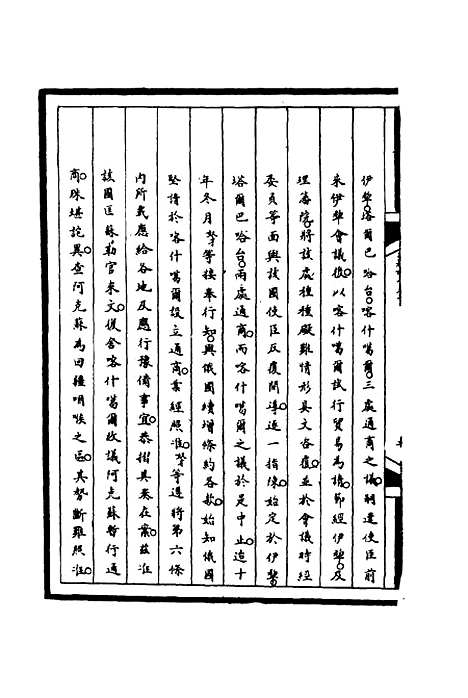 伊犂。塔爾巴哈台。喀什噶爾。三處通商之議。嗣遣使臣前
來伊犂會議。復以喀什噶爾試行貿易為請。節經伊犂。及
理藩院。將該處種種礙難情形具文咨復。並於會議時經
委員等面與該國使臣反復開導逐一指陳。始定於伊犂
塔爾巴哈台。兩處通商。而喀什噶爾之議於是中止。迨十
年冬月等接奉行知。與俄國續增條約各款。始知俄國
堅請於喀什噶爾設立通商。業經照准。等遵將第六條
內所載應給各地及應行豫備事宜。恭摺具奏在案。茲准
該國匡蘇勒官來文。復舍喀什噶爾改議阿克蘇暫行通
商。殊堪詫異。查阿克蘇為回疆咽喉之區。其勢斷難照准。